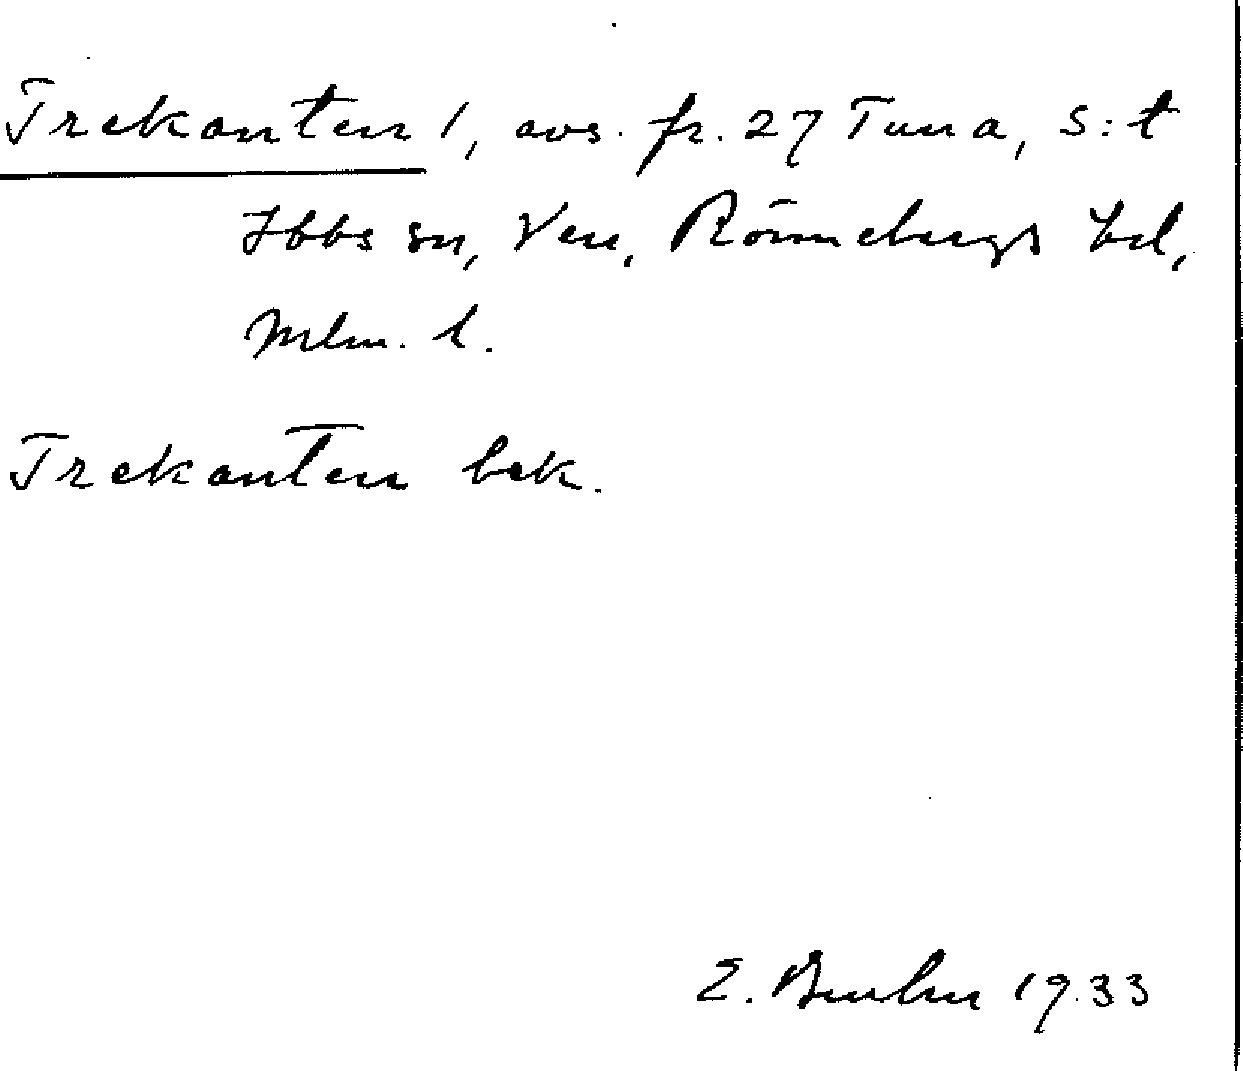 Trekanten 1, avs. fr. 27 Tuna, S:t
Ibbs sn, Ven, Rönnebergs hd,
Mlm. l.
Trekanten bek.
E. 1933